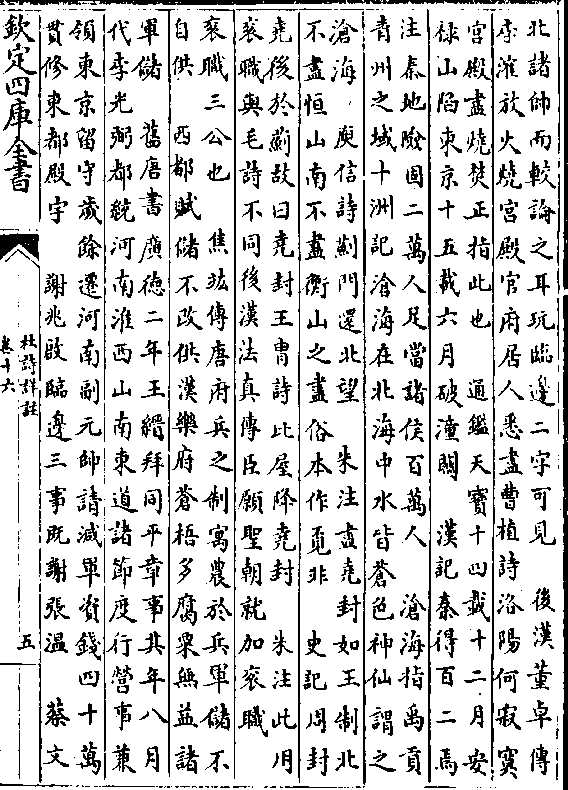 北諸帥而較論之耳玩臨邊二字可見　後漢董卓傳
李傕放火燒宮殿官府居人悉盡曹植詩洛陽何寂寞
宮殿盡燒焚正指此也　通鑑天寳十四載十二月安
禄山陷東京十五載六月破潼關　漢記秦得百二焉
注秦地險固二萬人足當諸侯百萬人　滄海指禹貢
青州之域十洲記滄海在北海中水皆蒼色神仙謂之
滄海　庾信詩薊門還北望　朱注盡堯封如王制北
不盡恒山南不盡衡山之盡俗本作覓非　史記周封
堯後於薊故曰堯封王胄詩比屋降堯封　朱注此用
衮職與毛詩不同後漢法真傳臣願聖朝就加衮職
衮職三公也　焦竑傳唐府兵之制寓農於兵軍儲不
自供　西都賦儲不改供漢樂府蒼梧多腐粟無益諸
軍儲　舊唐書廣德二年王縉拜同平章事其年八月
代李光弼都統河南淮西山南東道諸節度行營事兼
領東京留守歲餘遷河南副元帥請減軍資錢四十萬
貫修東都殿宇　謝兆啟臨邊三事既謝張温　蔡文
欽定四庫全書
杜詩詳註
卷十六
五